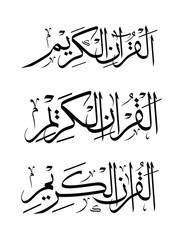 القرآن الكريم
القرآن الكريم
القرآن الكريم